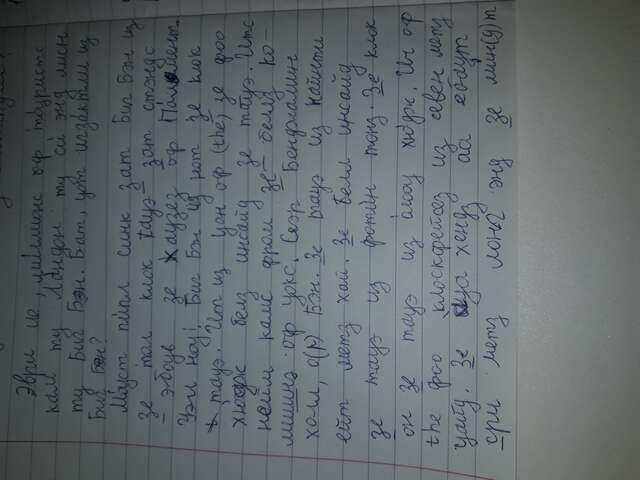 Эври ие, миллионс оф туристс
кам ту Лондон ту си энд мин
ту Биг Бэн. Бат, уот изэктли из
Биг Бэн?
Маует пипл синк зат Биг Бэн из
зе тол клок тауэ зат стэндс
эбоув зе хаузез оф Паламент.
Уэл ноу! Биг Бэн из нот зе клок
тауэ. Ит из уан оф (the) зе фоо
хьюдж белз инсайд зе тауэ. Итс
нейм камс фром зе белд ко-
мишинэ оф уокс. Сеэр Бенджамин
холл, о(р) Бэн. Зе тауэ из найнти
ейт метз хай. Зе белл инсайд
зе тауэ из фотийн тонз. Зе клок
он зе тауэ из олоу хьюдж. Ич оф
the фоо клокфейсез из севен метз
уайд. Зе ауа хендз аа эбаут
сри метз лонг энд зе мин(у)т